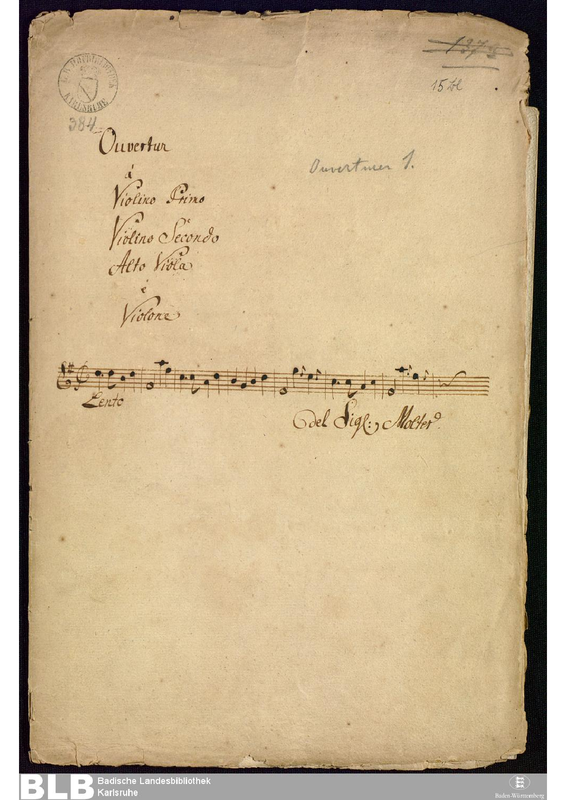 1375
15 bl
384
Ouvertur
à
Violino Primo
Violino Secondo
Alto Viola
è
Violone
Ouverturen 1.
Lento
del Sigl: Molter
BLB
Badische Landesbibliothek
Karlsruhe
Baden-Württemberg